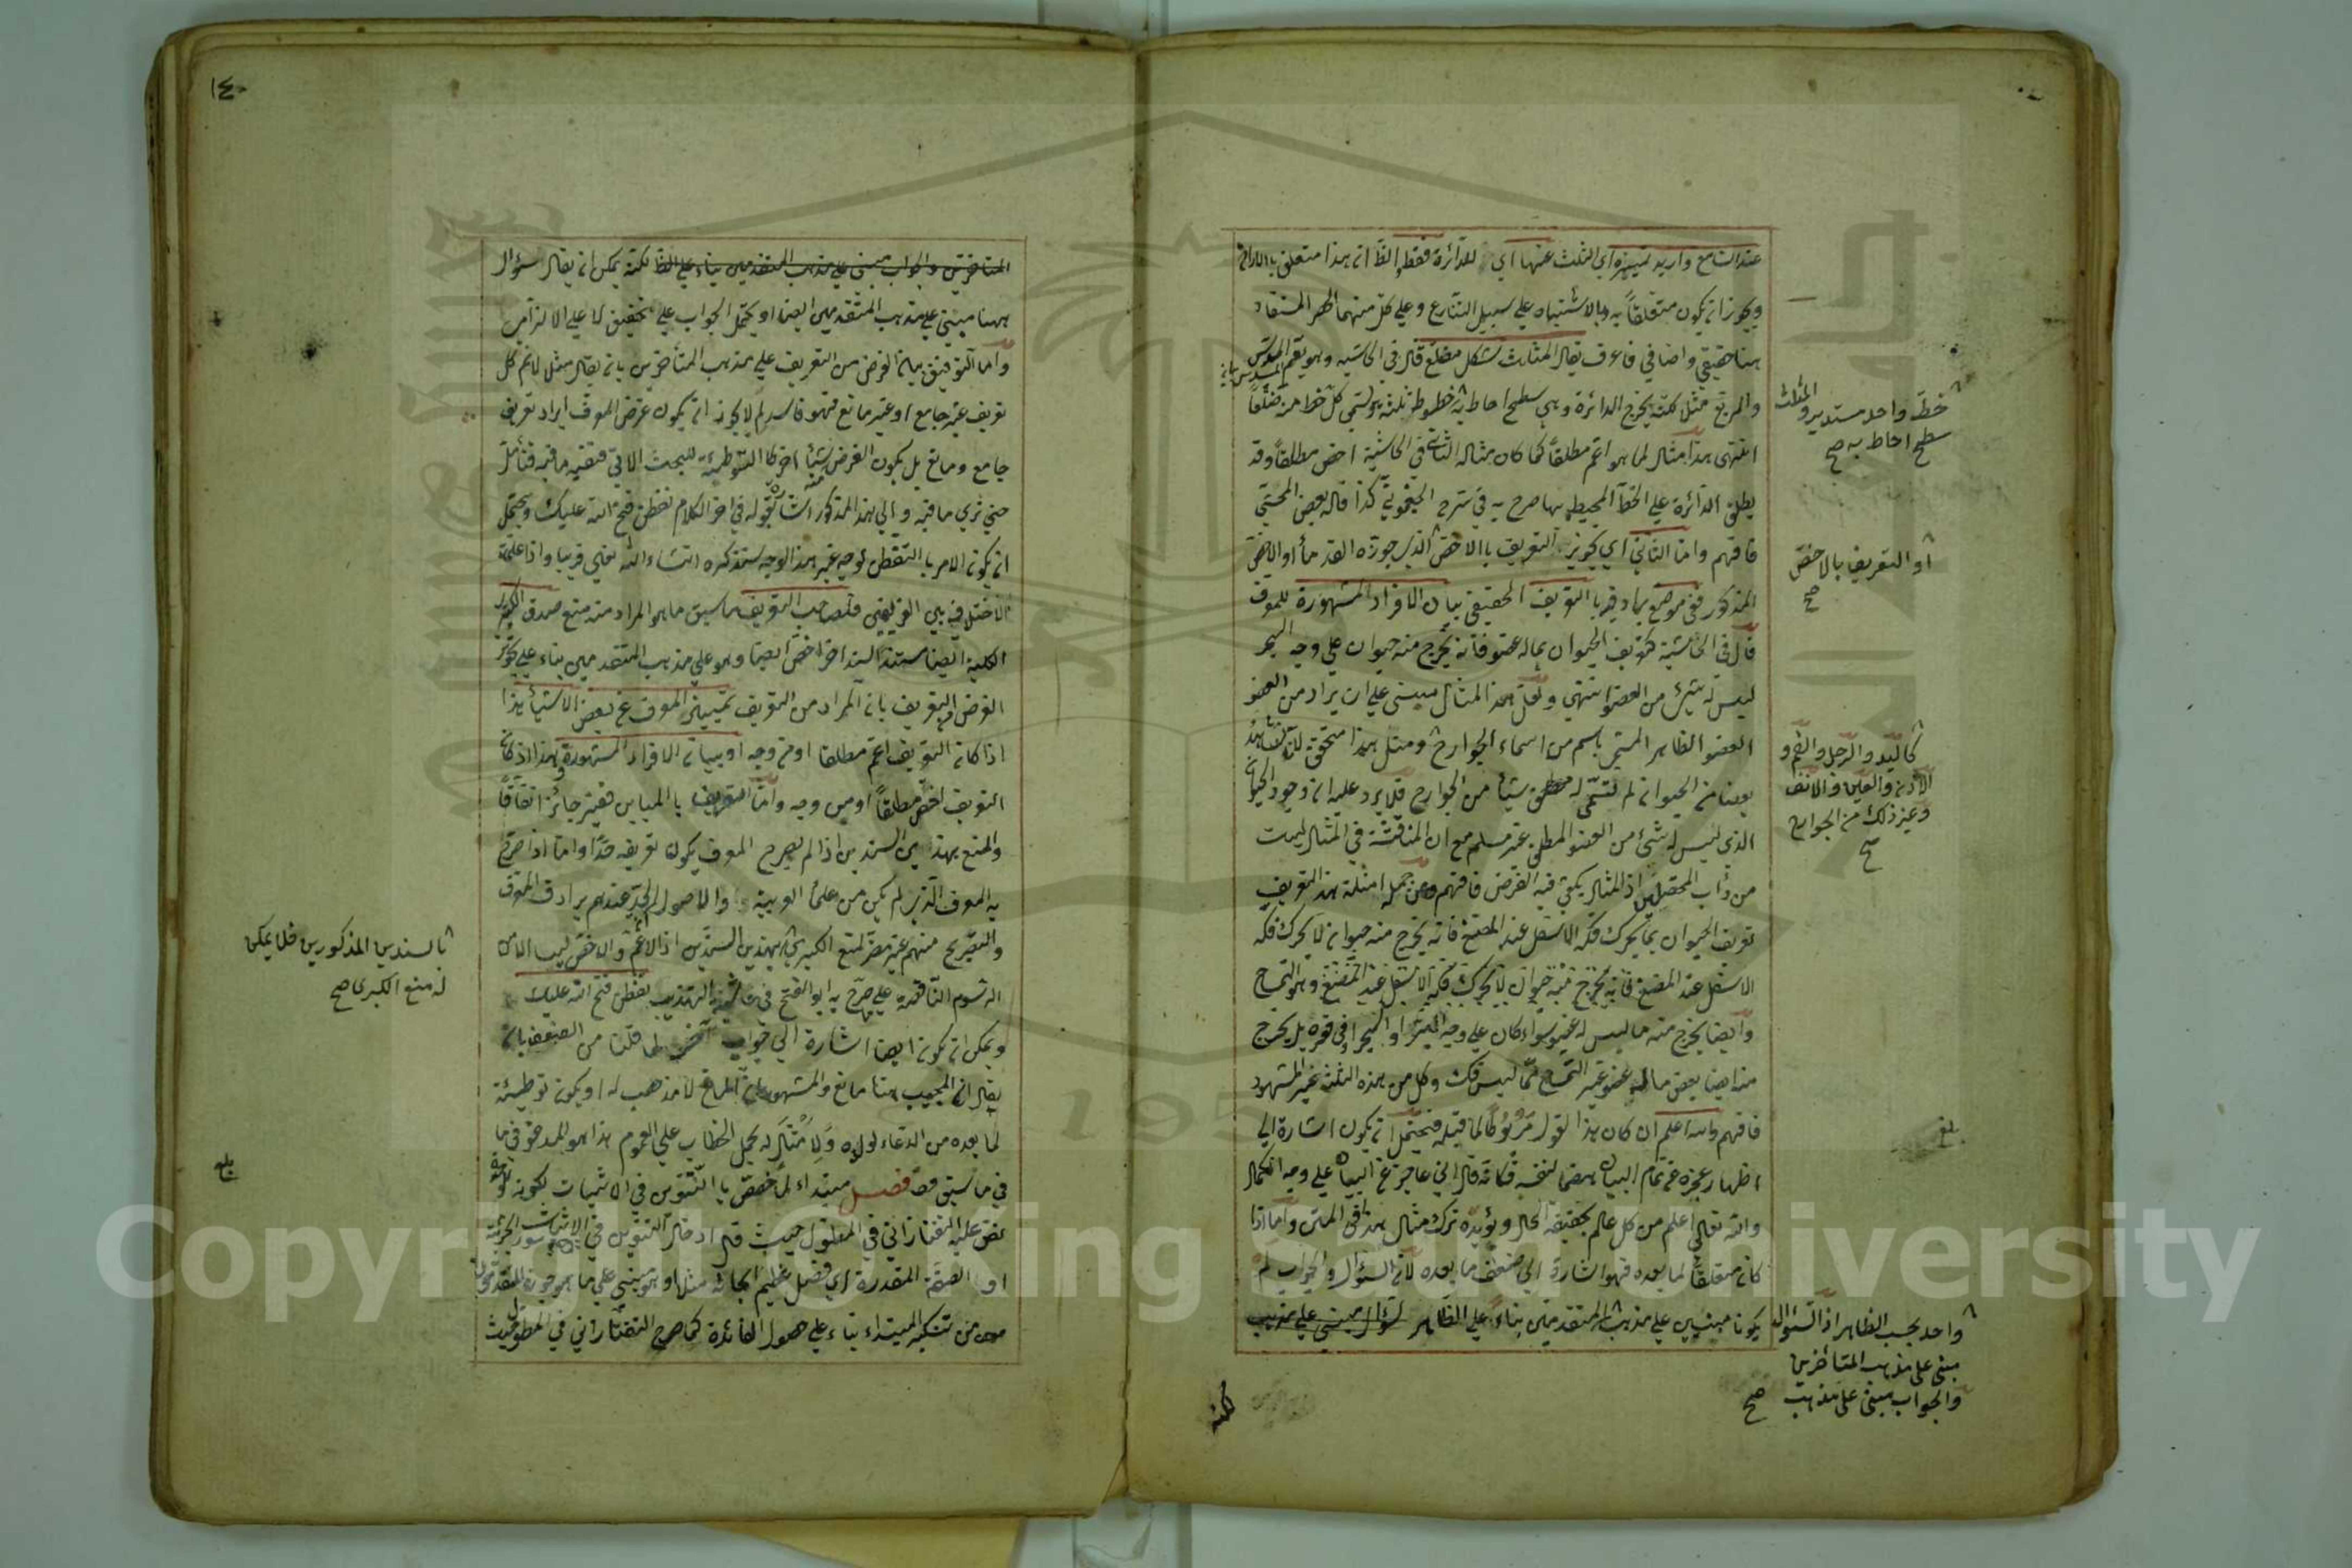 عند السامع واريد تمييزه اي المثلث عنها اي للدائرة فقط الظ ان هذا متعلق بالارادة
ويجوز ان يكون متعلقاً به وبالاشتباه على سبيل التنازع وعلى كل منهما الحصر المستفاد
ههنا حقيقي واضافي فاعرف يقال المثلث شكل مضلع قال في الحاشيه وهو يعم المسدس
والمربع مثل لكنه يخرج الدائرة وهي سطح احاط به خطوط ثلثة يسمى كل خط منه ضلعاً
انتهى هذا مثال لما هو اعم مطلقاً كما كان مثاله الثاني في الحاشية اخص مطلقاً وقد
يطلق الدائرة على الخط المحيط بها صرح به في شرح الجغميني كذا قاله بعض المحشي
فافهم واما الثاني اي تجويز التعريف بالاخص الذي جوزه القدماء او الاخص
المذكور ففي موضع يراد فيه بالتعريف الحقيقي بيان الافراد المشهورة للمعرف
قال في الحاشية كتعريف الحيوان بماله عضو فانه يخرج منه حيوان على وجه البحر
ليس له شيء من العضو انتهى ولعل هذا المثال مبني على ان يراد من العضو
العضو الظاهر المسمى باسم من اسماء الجوارح ومثل هذا متحقق لانا نشاهد
بعضا من الحيوان لم تسمى له شيئا من الجوارح فلا يرد عليه ان وجود الحيوان
الذي ليس له شيء من العضو المطلق غير مسلم مع ان المناقشة في المثال ليست
من دأب المحصلين اذ المثال يكفي فيه الفرض فافهم ومن جملة امثلة هذا التعريف
تعريف الحيوان بما يحرك فكه الاسفل عند المضغ فانه يخرج منه حيوان لا يحرك فكه
الاسفل عند المضغ فانه يخرج منه حيوان لا يحرك فكه الاسفل عند المضغ وهو التمساح
وايضا يخرج منه ما ليس له عضو سواء كان على وجه البحر او في قعره بل يخرج
منه ايضا بعض ماله عضو غير التمساح مما ليس فك وكل من هذه الثلث غير المشهود
فافهم والله اعلم ان كان هذا القول مربوطا لما قبله فيحتمل ان يكون اشارة الى
اظهار عجزه عن تمام البيان هضما لنفسه فكانه قال اني عاجز عن البيان على وجه الكمال
والله تعالى اعلم من كل عالم بحقيقة الحال ويؤيده ترك مثال هذا في المتن واما اذا
كان متعلقاً لما بعده فهو اشارة الى ضعف ما بعده لان السؤال والجواب لم
يكونا مبنيين على مذهب المتقدمين بناء على الظاهر سؤال مبني على مذهب
خط واحد مستدير والمثلث
سطح احاط به صح
او التعريف بالاخص
صح
كاليد والرجل والفم و
الاذن والعين والانف
وغير ذلك من الجوارح
صح
بلغ
واحد بحسب الظاهر اذ السئوال
مبني على مذهب المتأخرين
والجواب مبني على مذهب صح
لكنه
١٤٠
المتاخرين والجواب مبني على مذهب المتقدمين بناء على الظ لكنه يمكن ان يقال سؤال
ههنا مبني على مذهب المتقدمين ايضا او يحتمل الجواب على تحقيق لا على الالزامي
واما التوفيق بيان الغرض من التعريف على مذهب المتأخرين بان يقال مثل لا نم كل
تعريف غير جامع او غير مانع فهو فاسد لم لا يجوز ان يكون غرض المعرف ايراد تعريف
جامع ومانع بل يكون الغرض شيئا اخر كالتوطئة للبحث الاتي ففيه ما فيه فتأمل
حتى ترى ما فيه والى هذا المذكور اشار بقوله في اخر الكلام تفطن فتح الله عليك ويحتمل
ان يكون الامر بالتفطن لوجه غير هذا الوجه ستذكره انشاء الله تعالى قريبا واذا علمت
الاختلاف بين الفريقين فلصاحب التعريف ما سبق ما هو المراد منه منع صدق الكبرى
الكلية ايضا مستندا لسند اخر اخص ايضا وهو على مذهب المتقدمين بناء على تجويز
الغرض في التعريف بان المراد من التعريف تمييز المعرف عن بعض الاشياء هذا
اذا كان التعريف اعم مطلقا او من وجه او بيان الافراد المشهورة وهذا اذ كان
التعريف اخص مطلقاً او من وجه واما التعريف بالمباين فغير جائز اتفاقاً
والمنع بهذين السندين اذا لم يصرح المعرف بكون تعريفه حداً واما اذا صرح
به المعرف الذي لم يكن من علماء العربية والاصول الحد عندهم يرادف المعرف
والتصريح منهم غير مضر لمنع الكبرى بهذين السندين اذ الاعم والاخص ليسا الا من
الرسوم الناقصة على ما صرح به ابو الفتح في حاشية التهذيب تفطن فتح الله عليك
ويمكن ان يكون ايضا اشارة الى جواب آخر لما قلنا من الضعف بان
يقال ان المجيب هنا مانع والمشهور ان المانع لا مذهب له او يكون توطيئة
لما بعده من الدعاء لولده ولامثاله بحمل الخطاب على العموم هذا هو المدعو في ما
في ما سبق فصل مبتداء لما خصص بالتنوين في الاثبات لكونه
نص عليه التفتازاني في المطول حيث قال ادخال التنوين في الاثبات سور الجزئية
او الصفة المقدرة اي فصل عظيم ابحاثه مثلها وهو مبني على ما هو جوزه المتقدمون
من تنكير المبتداء بناء على حصول الفائدة كما صرح التفتازاني في المطول حيث
بالسندين المذكورين فلا يمكن
له منع الكبرى صح
بلغ
Copyright © King Saud University
1957